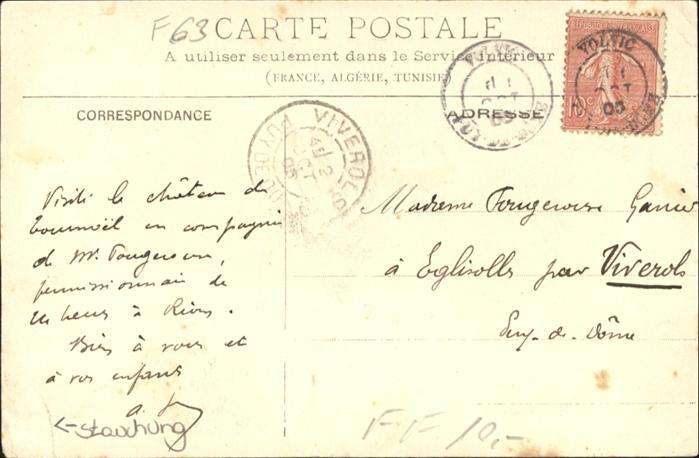 F 63
CARTE POSTALE
A utiliser seulement dans le Service intérieur
(FRANCE, ALGÉRIE, TUNISIE)
CORRESPONDANCE
ADRESSE
VOLVIC
VIVEROLS
PUY DE DOME
10 c
Visité le château de
Tournoël en compagnie
de Mr. Fougerouse,
permissionnaire de
24 heures à Riom.
Bien à vous et
à vos enfants
Madame Fougerouse Garnier
à Eglisolles par Viverols
Puy-de-Dôme
<-Stauchung
FF 10,-